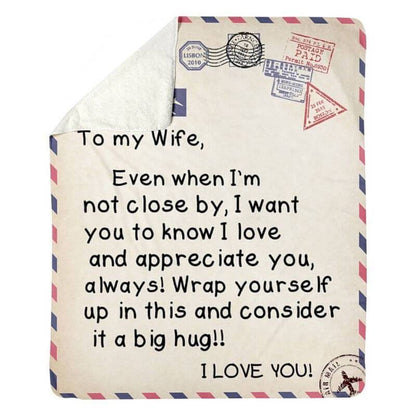 LISBON
2010
POSTAGE
PAID
Permit No.
To my Wife,
Even when I'm
not close by, I want
you to know I love
and appreciate you,
always! Wrap yourself
up in this and consider
it a big hug!!
I LOVE YOU!
AIR MAIL